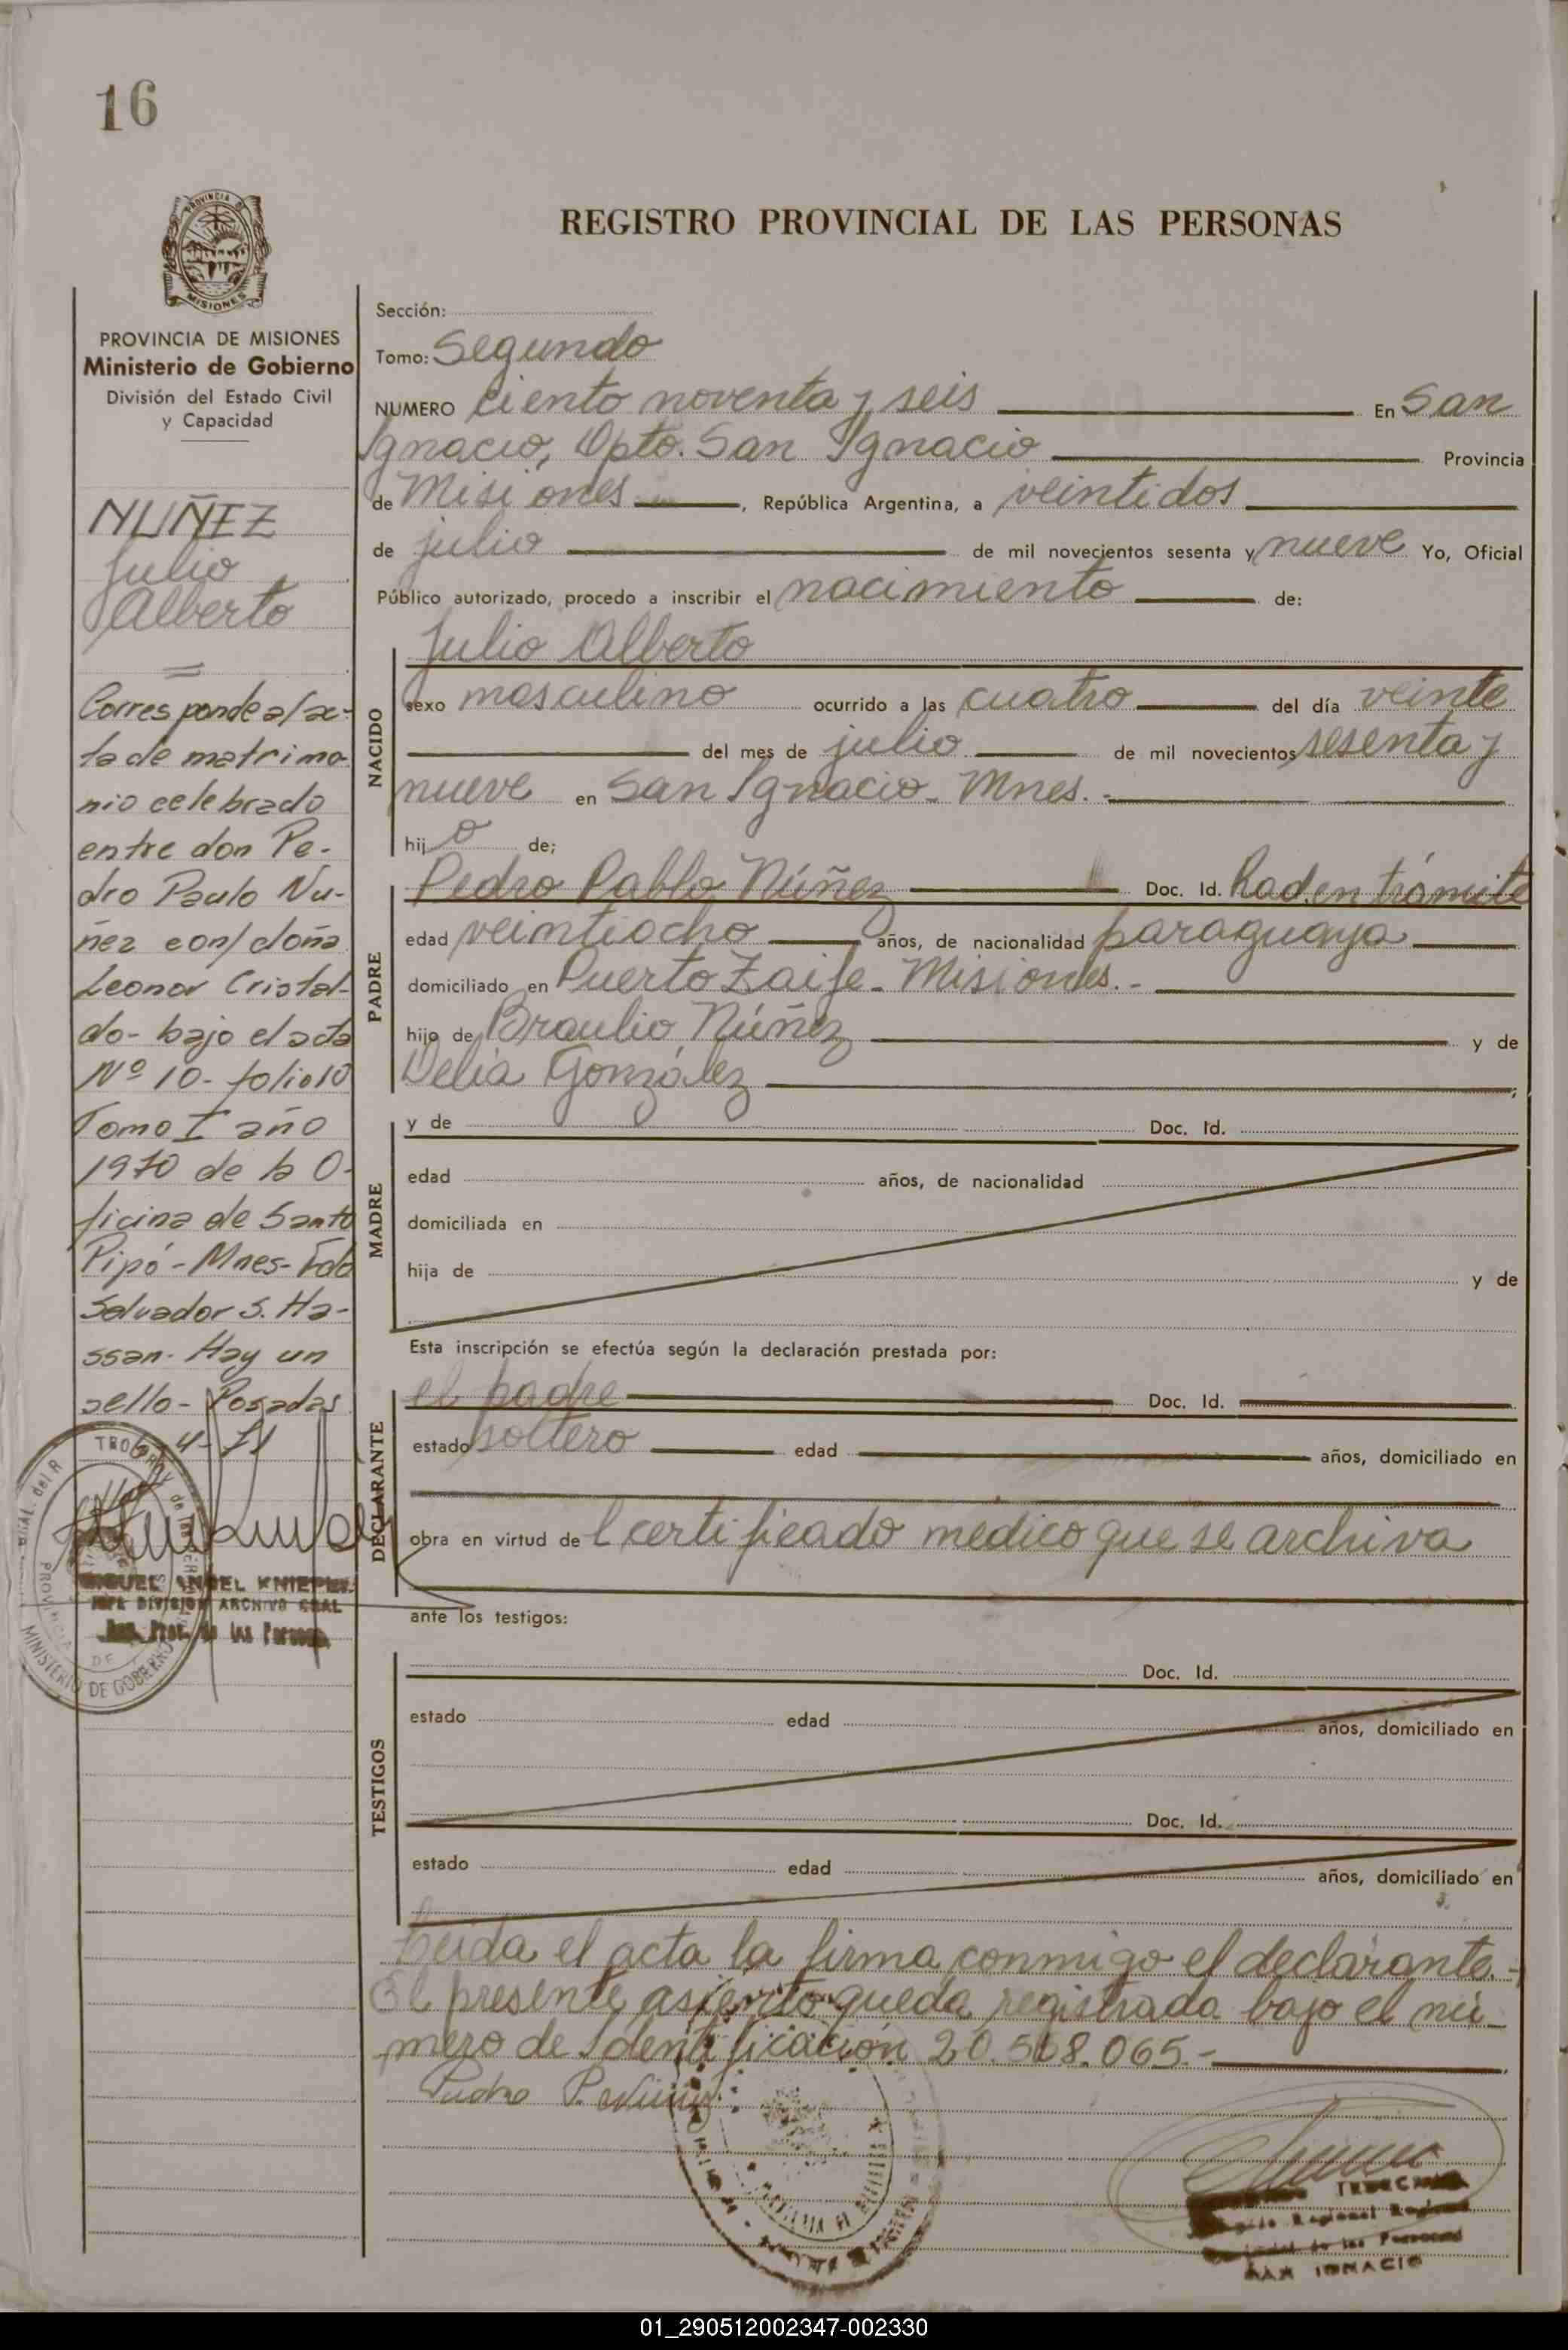 16
PROVINCIA DE
MISIONES
PROVINCIA DE MISIONES
Ministerio de Gobierno
División del Estado Civil
y Capacidad
NUÑEZ
Julio
Alberto
Corresponde a/ac-
ta de matrimo-
nio celebrado
entre don Pe-
dro Paulo Nu-
ñez con/doña
Leonor Cristal-
do- bajo el acta
Nº 10- folio 10
Tomo I año
1970 de la O-
ficina de Santo
Pipó- Mnes- Fdo
Salvador S. Ha-
ssan- Hay un
sello- Posadas
4-71
MIGUEL ANGEL
JEFE DIVISION ARCHIVO GRAL
Reg. Prov. de las Personas
MINISTERIO DE GOBIERNO
REGISTRO PROVINCIAL DE LAS PERSONAS
Sección:
Tomo: Segundo
NUMERO ciento noventa y seis En San
Ignacio, Dpto. San Ignacio Provincia
de Misiones, República Argentina, a veintidos
de julio de mil novecientos sesenta y nueve Yo, Oficial
Público autorizado, procedo a inscribir el nacimiento de:
NACIDO
Julio Alberto
sexo masculino ocurrido a las cuatro del día veinte
del mes de julio de mil novecientos sesenta y
nueve en San Ignacio- Mnes.-
hijo de;
PADRE
Pedro Pablo Núñez Doc. Id. Rad. en trámite
edad veintiocho años, de nacionalidad paraguaya
domiciliado en Puerto Zaife- Misiones.-
hijo de Braulio Núñez y de
Delia González;
MADRE
y de Doc. Id.
edad años, de nacionalidad
domiciliada en
hija de y de
Esta inscripción se efectúa según la declaración prestada por:
DECLARANTE
el padre Doc. Id.
estado soltero edad años, domiciliado en
obra en virtud de l certificado médico que se archiva
ante los testigos:
TESTIGOS
Doc. Id.
estado edad años, domiciliado en
Doc. Id.
estado edad años, domiciliado en
Leida el acta la firma conmigo el declarante.-
El presente asiento queda registrada bajo el nú-
mero de Identificación 20.568.065.-
Pedro P. Nuñez
Regional
de las Personas
SAN IGNACIO
01_290512002347-002330